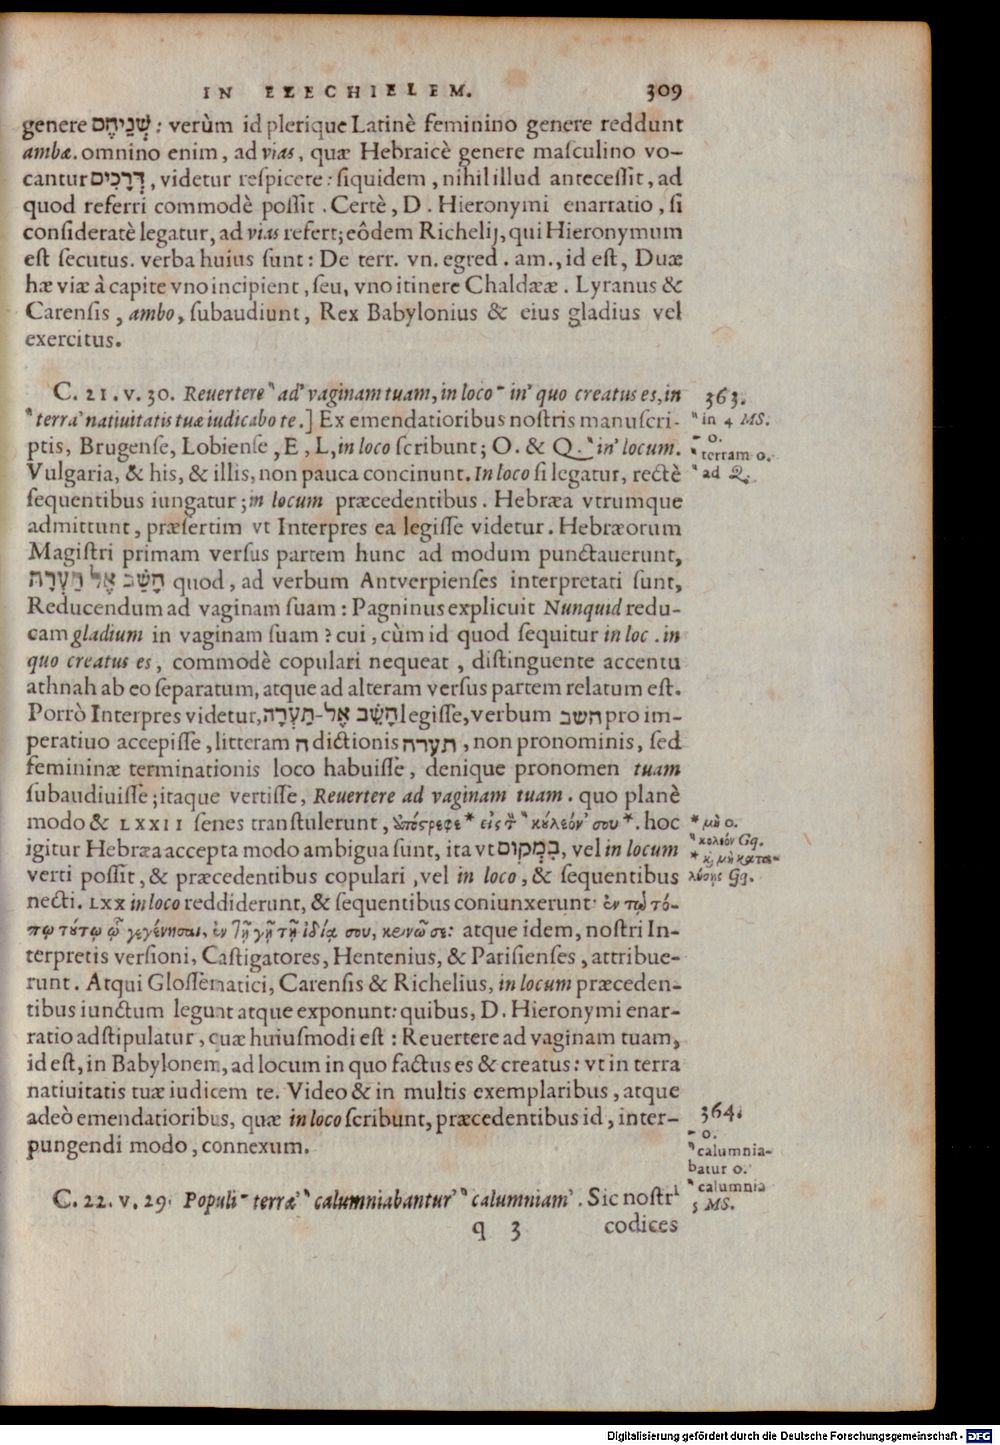 IN EZECHIELEM. 309
genere שְׁנֵיהֶם: verùm id plerique Latinè feminino genere reddunt
ambæ. omnino enim, ad vias, quæ Hebraicè genere masculino vo-
cantur דְּרָכִים, videtur respicere: siquidem, nihil illud antecessit, ad
quod referri commodè possit. Certè, D. Hieronymi enarratio, si
consideratè legatur, ad vias refert; eôdem Richelij, qui Hieronymum
est secutus. verba huius sunt: De terr. vn. egred. am., id est, Duæ
hæ viæ à capite vno incipient, seu, vno itinere Chaldææ. Lyranus &
Carensis, ambo, subaudiunt, Rex Babylonius & eius gladius vel
exercitus.
C. 21. v. 30. Reuertere ad vaginam tuam, in loco in quo creatus es, in
terra natiuitatis tuæ iudicabo te.] Ex emendatioribus nostris manuscri-
ptis, Brugense, Lobiense, E, L, in loco scribunt; O. & Q. in locum.
Vulgaria, & his, & illis, non pauca concinunt. In loco si legatur, rectè
sequentibus iungatur; in locum præcedentibus. Hebræa vtrumque
admittunt, præsertim vt Interpres ea legisse videtur. Hebræorum
Magistri primam versus partem hunc ad modum punctauerunt,
הָשַׁב אֶל תַּעְרָהּ quod, ad verbum Antverpienses interpretati sunt,
Reducendum ad vaginam suam: Pagninus explicuit Nunquid redu-
cam gladium in vaginam suam? cui, cùm id quod sequitur in loc. in
quo creatus es, commodè copulari nequeat, distinguente accentu
athnah ab eo separatum, atque ad alteram versus partem relatum est.
Porrò Interpres videtur, הָשֵׁב אֶל-תַּעְרָה legisse, verbum השב pro im-
peratiuo accepisse, litteram ה dictionis תערה, non pronominis, sed
femininæ terminationis loco habuisse, denique pronomen tuam
subaudiuisse; itaque vertisse, Reuertere ad vaginam tuam. quo planè
modo & LXXII senes transtulerunt, ὑπόςρεφε * εἰς τ̀ κόλεόν σου *. hoc
igitur Hebræa accepta modo ambigua sunt, ita vt בִּמְקוֹם, vel in locum
verti possit, & præcedentibus copulari, vel in loco, & sequentibus
necti. LXX in loco reddiderunt, & sequentibus coniunxerunt: ἐν τῷ τό-
πῳ τούτῳ ᾧ γεγένησαι, ἐν τῇ γῇ τῇ ἰδίᾳ σου, κρινῶ σε: atque idem, nostri In-
terpretis versioni, Castigatores, Hentenius, & Parisienses, attribue-
runt. Atqui Glossematici, Carensis & Richelius, in locum præceden-
tibus iunctum legunt atque exponunt: quibus, D. Hieronymi enar-
ratio adstipulatur, quæ huiusmodi est: Reuertere ad vaginam tuam,
id est, in Babylonem, ad locum in quo factus es & creatus: vt in terra
natiuitatis tuæ iudicem te. Video & in multis exemplaribus, atque
adeò emendatioribus, quæ in loco scribunt, præcedentibus id, inter-
pungendi modo, connexum.
C. 22. v. 29. Populi terræ calumniabantur calumniam. Sic nostri
q 3 codices
363.
in 4 MS.
o.
terram o.
ad Q.
* μὴ o.
κολεόν Gg.
* κ̣ μὴ κατα-
λύσῃς Gg.
364.
o.
calumnia-
batur o.
calumnia
5 MS.
Digitalisierung gefördert durch die Deutsche Forschungsgemeinschaft - DFG